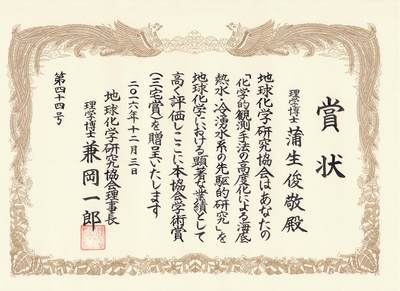 賞状
理学博士 蒲生俊敬殿
地球化学研究協会はあなたの
「化学的観測手法の高度化による海底
熱水・冷湧水系の先駆的研究」を
地球化学における顕著な業績として
高く評価しここに本協会学術賞
(三宅賞)を贈呈いたします
二〇一六年十二月三日
地球化学研究協会理事長
理学博士 兼岡一郎
第四十四号